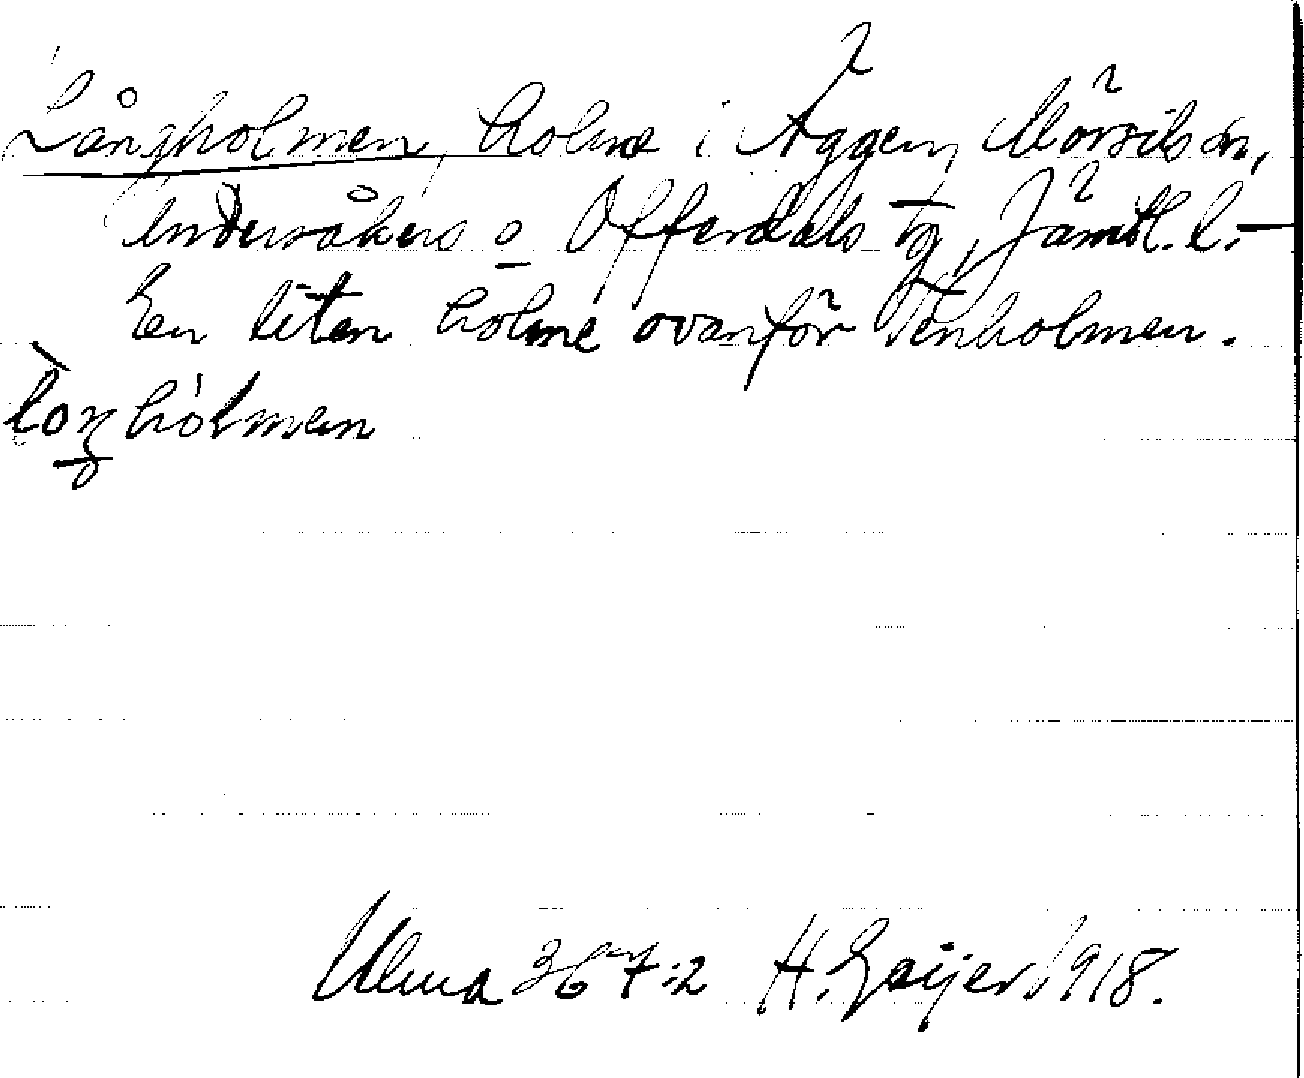 Långholmen, holme i Äggen, Mörsils sn,
Undersåkers o Offerdals tg, Jämtl. l. –
En liten holme ovanför Tenholmen.
lòŋhòlmen
Ulma 367:2 H. Geijer 1918.